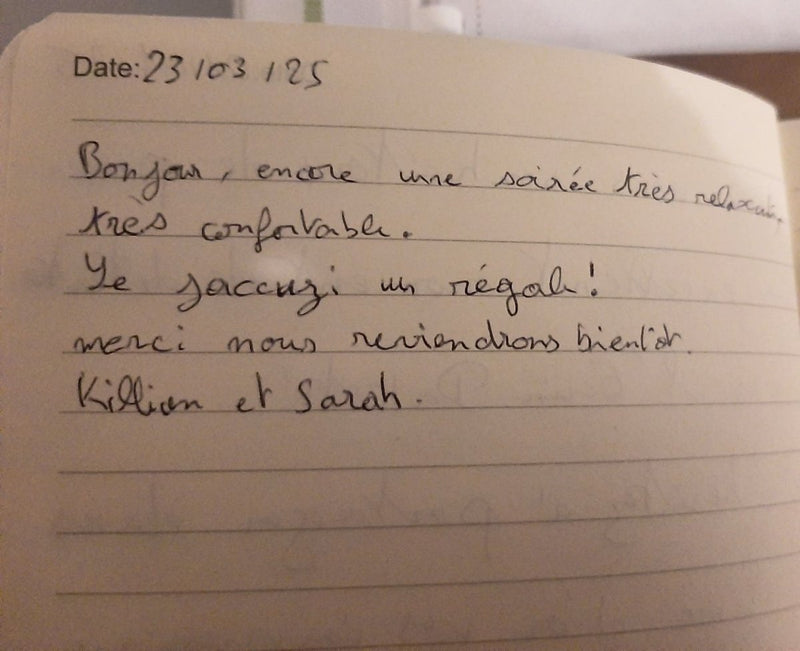 Date: 23/03/25
Bonjour, encore une soirée très relaxante,
très confortable.
Le jaccuzi un régale!
merci nous reviendrons bientôt.
Killian et Sarah.